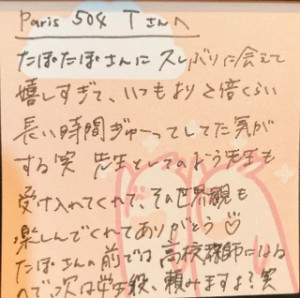 Paris 504 Tさんへ
たぽたぽさんに久しぶりに会えて
嬉しすぎて、いつもより2倍くらい
長い時間ぎゅーってしてた気が
する笑 先生としてのぶう先生も
受け入れてくれて、その世界観も
楽しんでくれてありがとう♡
たぽさんの前では高校教師になる
ので次は学生役、頼みますよ?笑